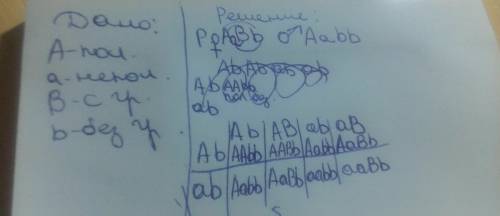 Дано:
А-пол.
а-непол.
В-с гр.
b-без гр.
Решение:
P ♀ AaBb ♂ Aabb
Ab
ab
Ab AB ab aB
Ab AAbb AABb Aabb AaBb
ab Aabb AaBb aabb aaBb